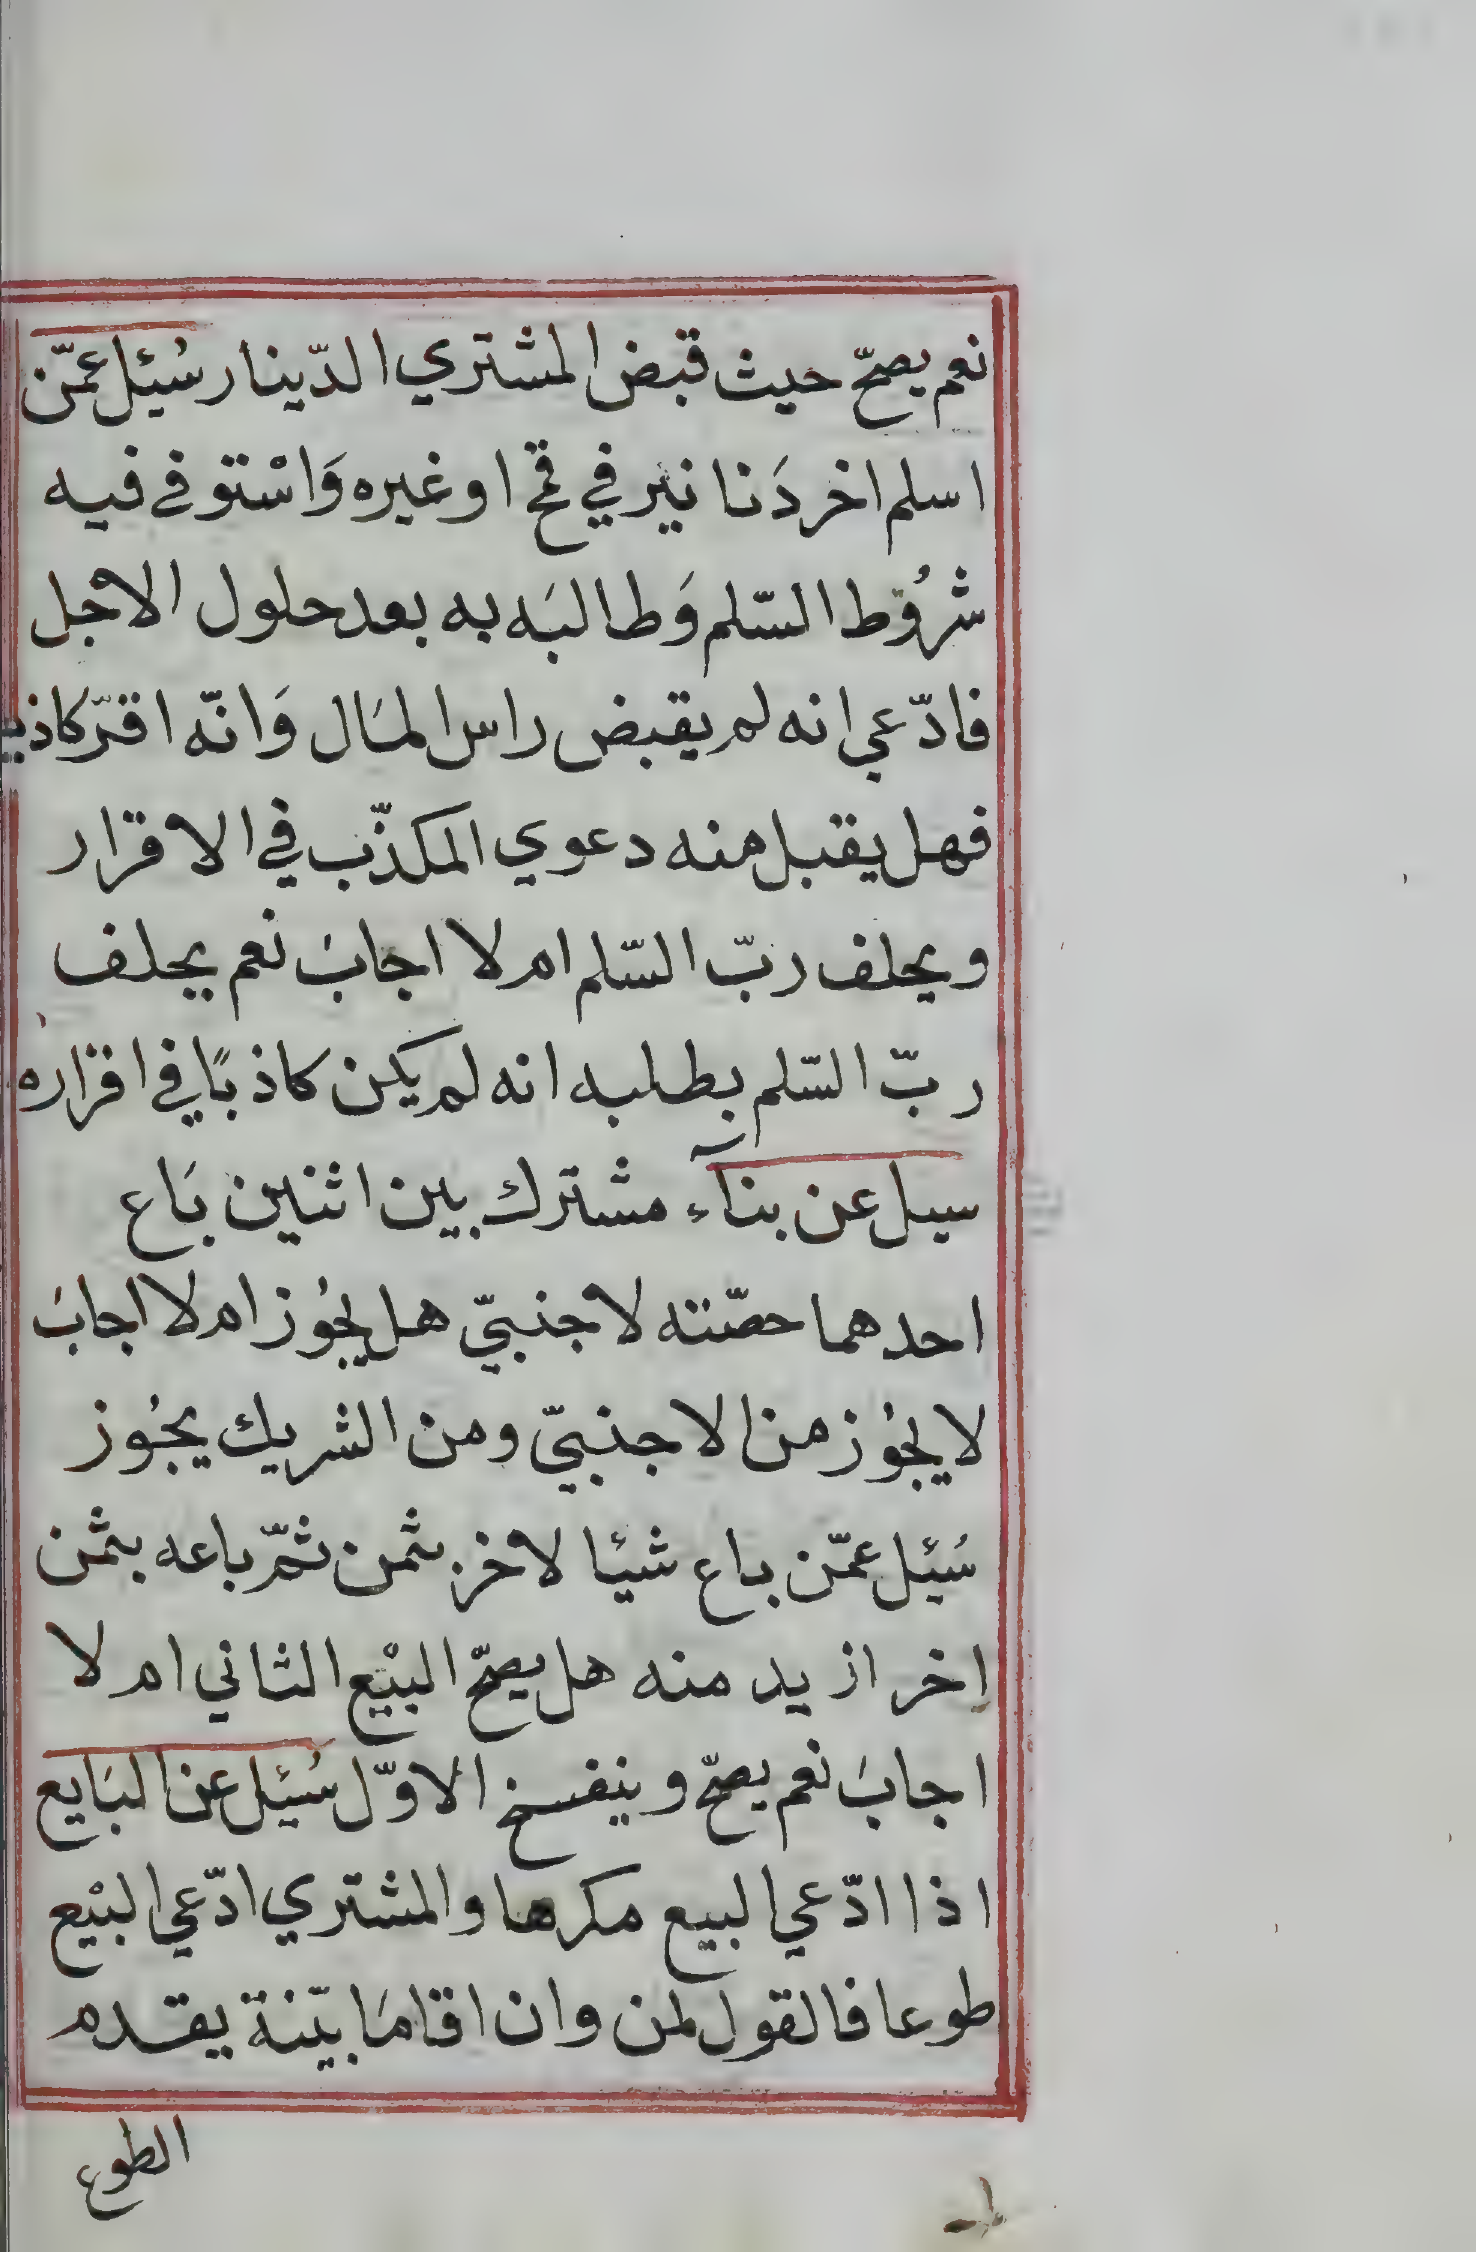 نعم يصحّ حيث قبض المشتري الدّينار سُئِل عمّن
اسلم اخر دَنانير في قمح او غيره وَاسْتوفي فيه
شرُوط السّلم وَطالبَه به بعد حلول الاجل
فادّعي انه لم يقبض راس المَال وَانّه اقرّ كاذبا
فهل يقبل منه دعوي المكذّب في الاقرار
ويحلف ربّ السّلم ام لا اجابَ نعم يحلف
ربّ السّلم بطلبه انه لم يكن كاذبًا في اقراره
سيل عن بنآء مشترك بين اثنين بَاع
احدهما حصّته لاجنبيّ هل يجُوز ام لا اجابَ
لا يجُوز من الاجنبيّ ومن الشريك يجُوز
سُئِل عمّن باع شيئا لاخر بثمن ثمّ باعه بثمن
اخر ازيد منه هل يصحّ البيْع الثاني ام لا
اجابَ نعم يصحّ وينفسخ الاوّل سُئِل عن البَايع
اذا ادّعي البيع مكرها والمشتري ادّعي البيْع
طوعا فالقول لمن وان اقامَا بيّنة يقدم
الطوع